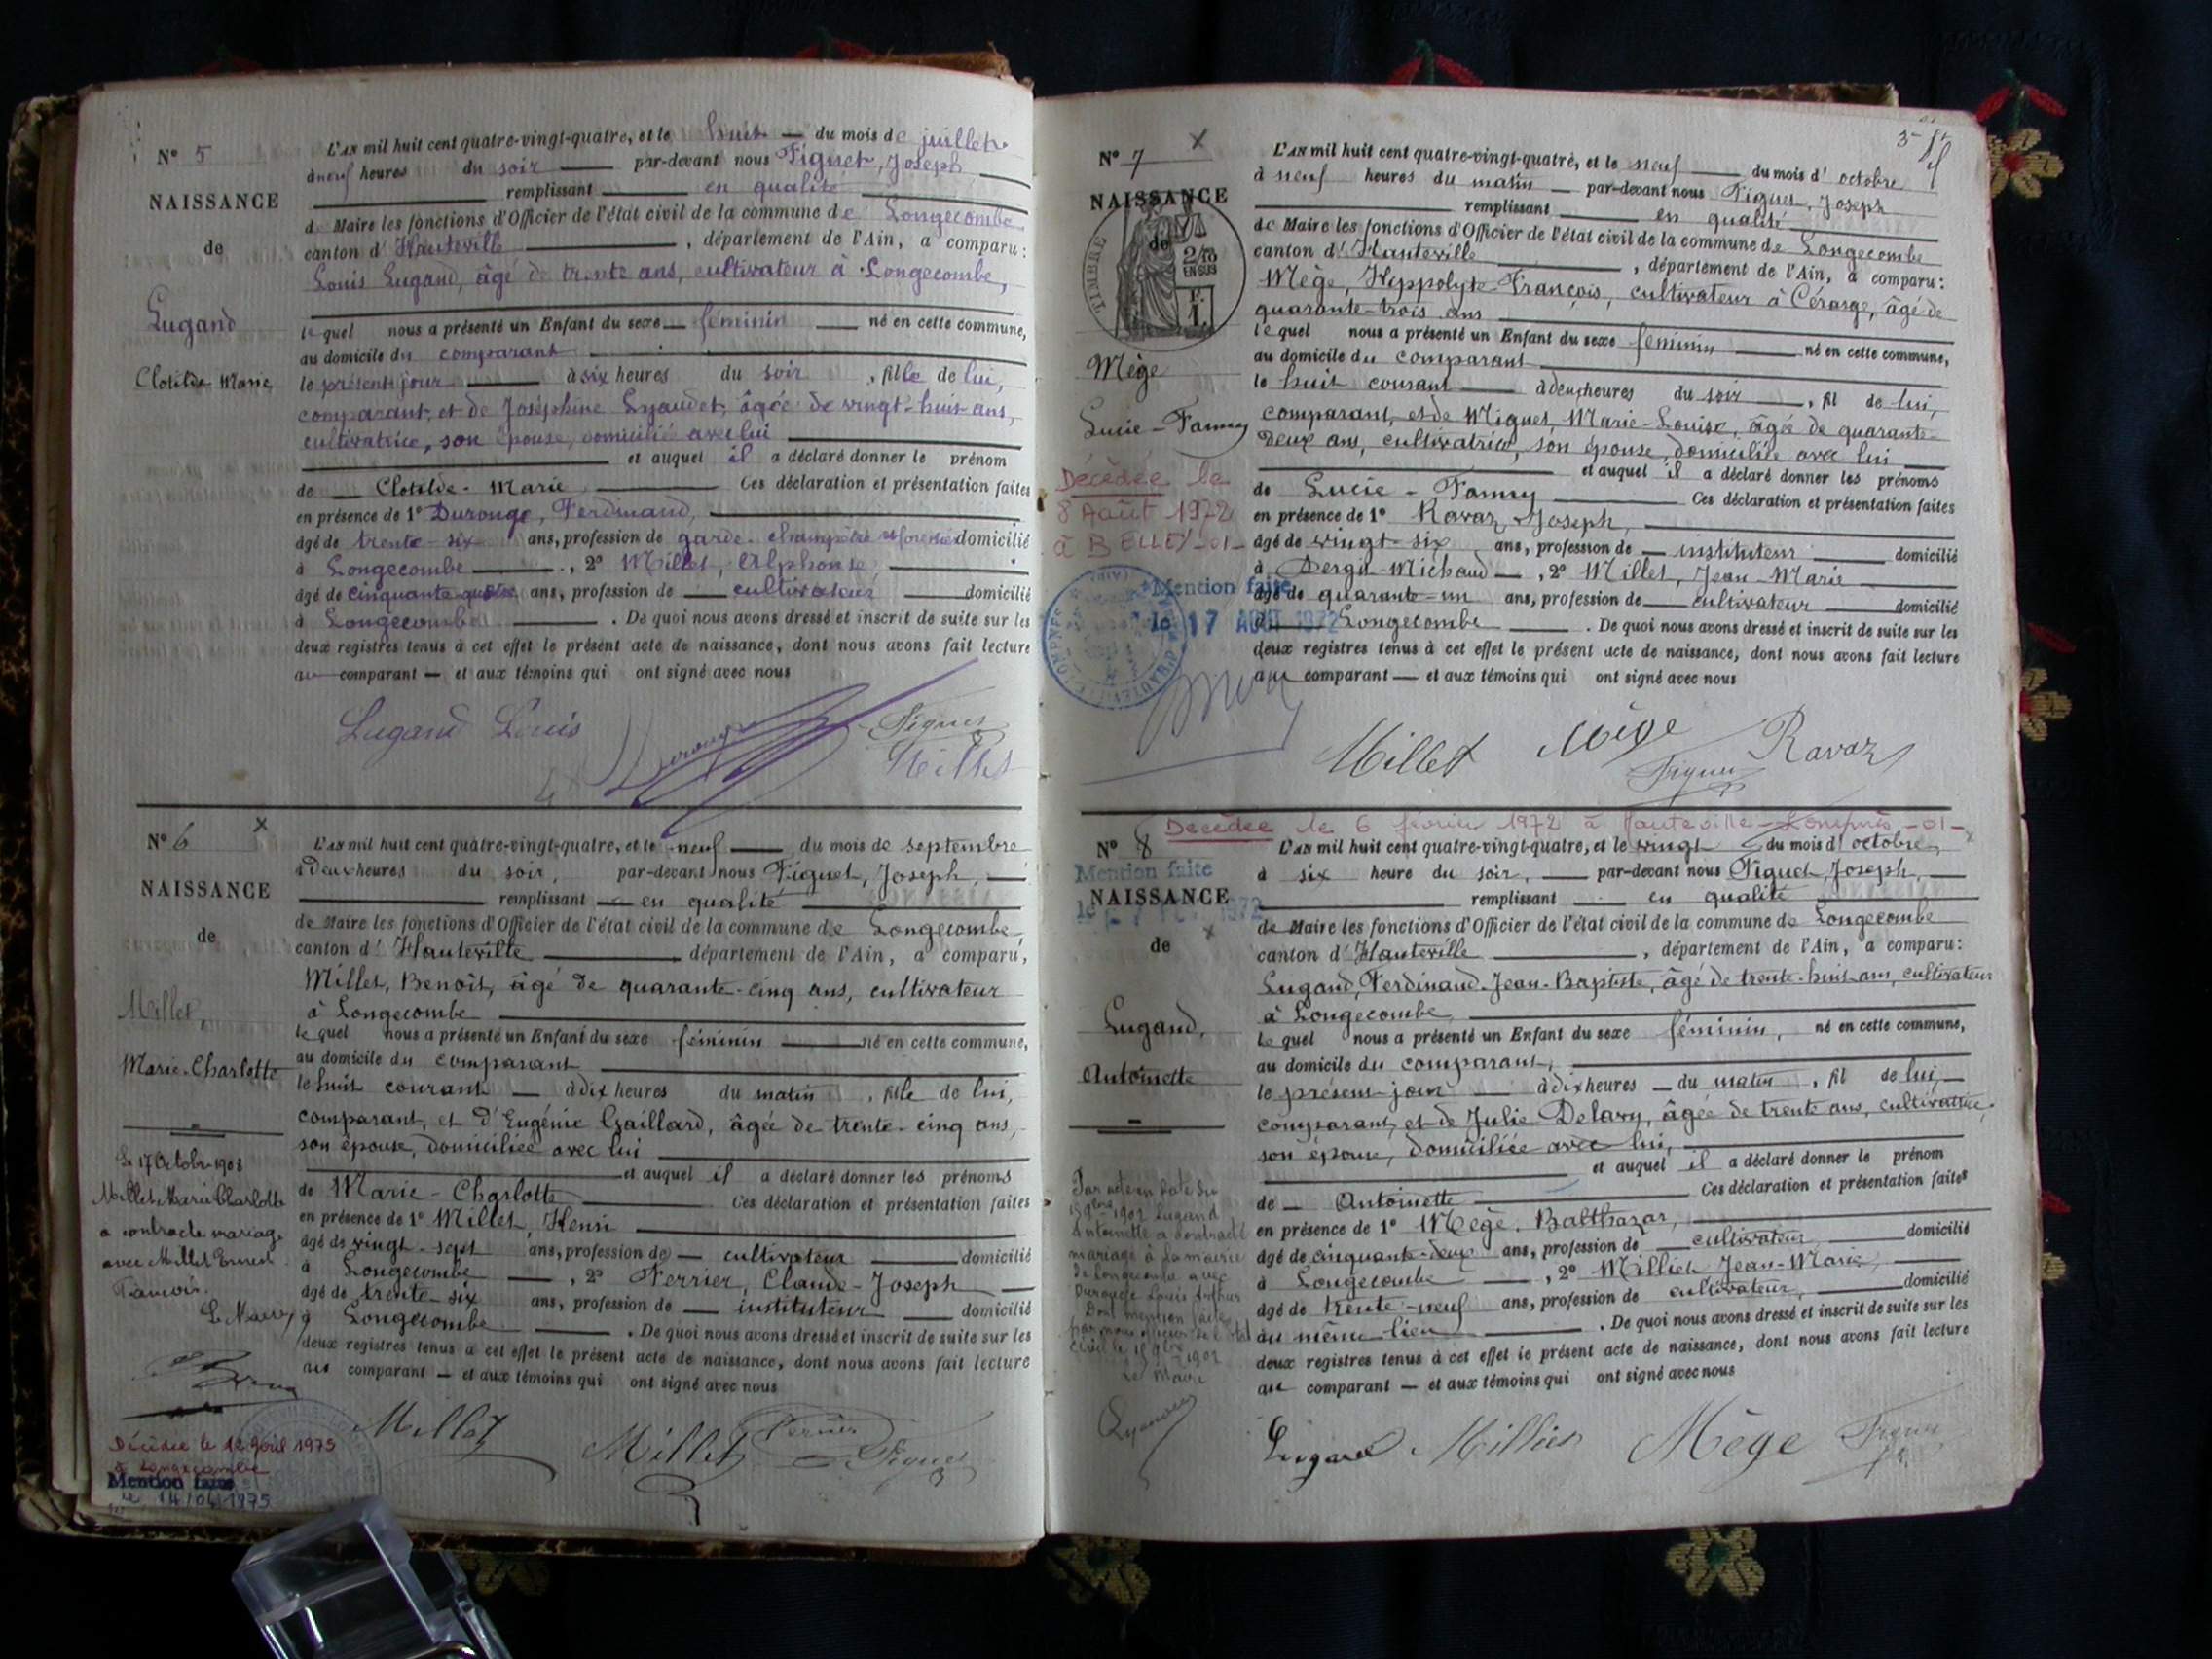 N° 5
NAISSANCE
de
Lugand
Clotilde Marie
L'AN mil huit cent quatre-vingt-quatre, et le huit du mois de juillet
à neuf heures du soir par-devant nous Figuet, Joseph
remplissant en qualité
de Maire les fonctions d'Officier de l'état civil de la commune de Longecombe
canton d'Hauteville, département de l'Ain, a comparu:
Louis Lugand, âgé de trente ans, cultivateur à Longecombe,
lequel nous a présenté un Enfant du sexe féminin né en cette commune,
au domicile du comparant
le présent jour à six heures du soir, fille de lui,
comparant, et de Joséphine Lyaudet, âgée de vingt-huit ans,
cultivatrice, son épouse, domicilié avec lui
et auquel il a déclaré donner le prénom
de Clotilde-Marie Ces déclaration et présentation faites
en présence de 1° Durouge, Ferdinand,
âgé de trente-six ans, profession de garde-champêtre et forestier domicilié
à Longecombe, 2° Millet, Alphonse,
âgé de cinquante quatre ans, profession de cultivateur domicilié
à Longecombe. De quoi nous avons dressé et inscrit de suite sur les
deux registres tenus à cet effet le présent acte de naissance, dont nous avons fait lecture
au comparant et aux témoins qui ont signé avec nous
Lugand Louis Durouge Figuet
Millet
N° 6 x
NAISSANCE
de
Millet,
Marie-Charlotte
L'AN mil huit cent quatre-vingt-quatre, et le neuf du mois de septembre
à deux heures du soir, par-devant nous Figuet, Joseph,
remplissant en qualité
de Maire les fonctions d'Officier de l'état civil de la commune de Longecombe,
canton d'Hauteville département de l'Ain, a comparu,
Millet, Benoît, âgé de quarante-cinq ans, cultivateur
à Longecombe
lequel nous a présenté un Enfant du sexe féminin né en cette commune,
au domicile du comparant
le huit courant à dix heures du matin, fille de lui,
comparant, et d'Eugénie Gaillard, âgée de trente-cinq ans,
son épouse, domiciliée avec lui
et auquel il a déclaré donner les prénoms
de Marie-Charlotte Ces déclaration et présentation faites
en présence de 1° Millet, Henri
âgé de vingt-sept ans, profession de cultivateur domicilié
à Longecombe, 2° Perrier, Claude-Joseph
âgé de trente-six ans, profession de instituteur domicilié
à Longecombe. De quoi nous avons dressé et inscrit de suite sur les
deux registres tenus à cet effet le présent acte de naissance, dont nous avons fait lecture
au comparant et aux témoins qui ont signé avec nous
Millet Millet Perrier Figuet
Le 17 Octobre 1908
Millet Marie Charlotte
a contracté mariage
avec Millet Ernest
Le Maire
Décédée le 12 avril 1975
à Longecombe
Mention faite
le 14/04/1975
N° 7 x
NAISSANCE
de
TIMBRE
2/10
EN SUS
Mège
Lucie-Fanny
Décédée le
8 Août 1972
à BELLEY-01-
Mention faite
le 17 AOUT 1972
L'AN mil huit cent quatre-vingt-quatre, et le neuf du mois d'octobre
à neuf heures du matin par-devant nous Figuet, Joseph
remplissant en qualité
de Maire les fonctions d'Officier de l'état civil de la commune de Longecombe
canton d'Hauteville, département de l'Ain, a comparu:
Mège, Hippolyte-François, cultivateur à Cérarge, âgé de
quarante-trois ans
lequel nous a présenté un Enfant du sexe féminin né en cette commune,
au domicile du comparant
le huit courant à deux heures du soir, fil de lui,
comparant, et de Miguet, Marie-Louise, âgée de quarante-
deux ans, cultivatrice, son épouse, domiciliée avec lui
et auquel il a déclaré donner les prénoms
de Lucie-Fanny Ces déclaration et présentation faites
en présence de 1° Ravaz, Joseph,
âgé de vingt-six ans, profession de instituteur domicilié
à Sergu-Michaud, 2° Millet, Jean-Marie
âgé de quarante-un ans, profession de cultivateur domicilié
à Longecombe. De quoi nous avons dressé et inscrit de suite sur les
deux registres tenus à cet effet le présent acte de naissance, dont nous avons fait lecture
au comparant et aux témoins qui ont signé avec nous
Millet Mège Figuet Ravaz
Décédée le 6 février 1972 à Hauteville-Lompnès-01-
N° 8
Mention faite
NAISSANCE
de
Lugand,
Antoinette
L'AN mil huit cent quatre-vingt-quatre, et le vingt du mois d'octobre,
à six heure du soir, par-devant nous Figuet, Joseph,
remplissant en qualité
de Maire les fonctions d'Officier de l'état civil de la commune de Longecombe
canton d'Hauteville, département de l'Ain, a comparu:
Lugand, Ferdinand-Jean-Baptiste, âgé de trente-huit ans, cultivateur
à Longecombe,
lequel nous a présenté un Enfant du sexe féminin, né en cette commune,
au domicile du comparant,
le présent jour à dix heures du matin, fil de lui,
comparant, et de Julie Delavy, âgée de trente ans, cultivatrice,
son épouse, domiciliée avec lui,
et auquel il a déclaré donner le prénom
de Antoinette Ces déclaration et présentation faites
en présence de 1° Mège, Balthazar,
âgé de cinquante-deux ans, profession de cultivateur domicilié
à Longecombe, 2° Milliet Jean-Marie,
âgé de trente-neuf ans, profession de cultivateur, domicilié
au même lieu. De quoi nous avons dressé et inscrit de suite sur les
deux registres tenus à cet effet le présent acte de naissance, dont nous avons fait lecture
au comparant et aux témoins qui ont signé avec nous
Lugand Milliet Mège Figuet
Par acte en date du
15 9bre 1902 Lugand
Antoinette a contracté
mariage à la mairie
de Longecombe avec
Durouge Louis Arthur
Dont mention faite
par nous officier de l'état
civil le 15 9bre 1902
Le Maire